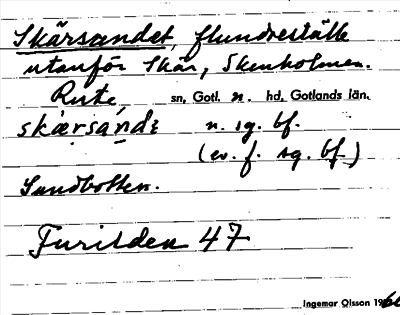 Skärsandet, flundreställe
utanför Skär, Skenholmen.
Rute, sn, Gotl. n. hd, Gotlands län.
n. sg. bf.
(ev. f. sg. bf.)
Sandbotten.
Furilden 47
Ingemar Olsson 19